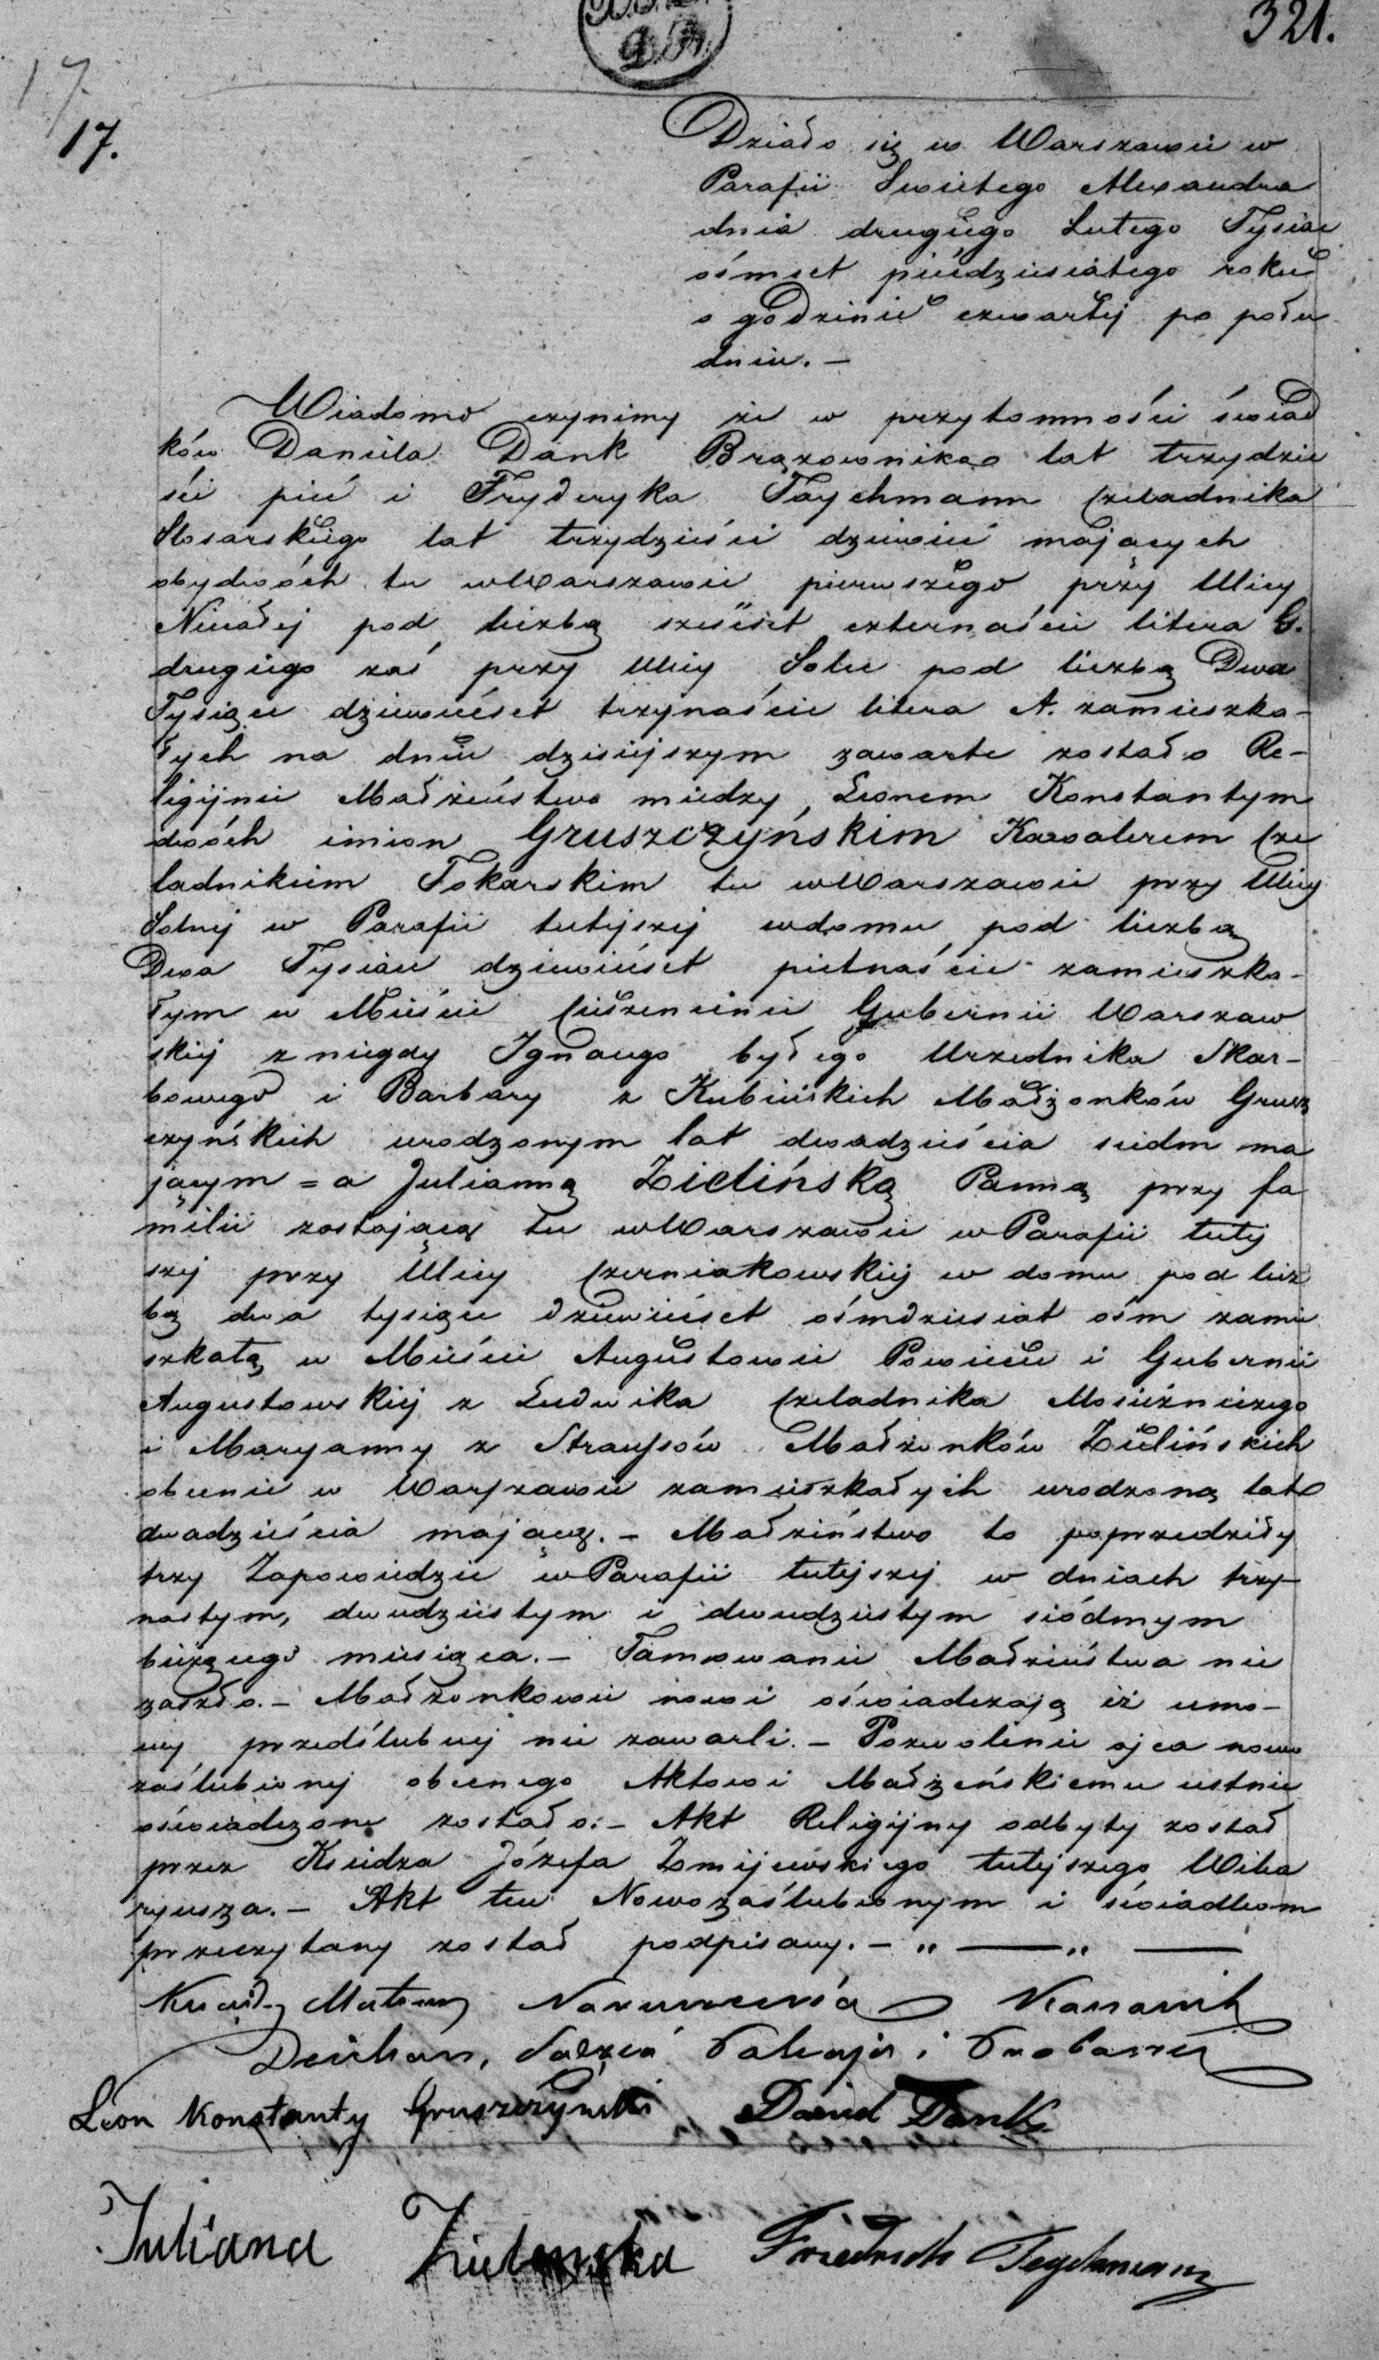 321.
17
17.
Działo się w Warszawie w
Parafii Swietego Alexandra
dnia drugiego Lutego Tysiąc
ośmset piedziesiątego roku
o godzinie czwartej po połu
dniu. —
Wiadomo czynimy że w przytomności świad
ków Daniela Dank Brązownika lat trzydzie
ści pieć i Fryderyka Taychmann Czeladnika
Slosarskiego lat trzydzieści dziewieć mających
obydwóch tu w Warszawie pierwszego przy Ulicy
Niecałej pod liczbą sześset czternaście litera G.
drugiego zaś przy Ulicy Solec pod liczbą Dwa
Tysiące dziewiećset trzynaście litera A. zamieszka-
łych na dniu dzisiejszym zawarte zostało Re-
ligijnie Małżeństwo miedzy Leonem Konstantym
dwóch imion Gruszczyńskim Kawalerem Cze
ladnikiem Tokarskim tu w Warszawie przy Ulicy
Solnej w Parafii tutejszej w domu pod liczbą
Dwa Tysiące dziewiećset pietnaście zamieszka-
łym w Mieście Gubernii Warszaw
skiej z niegdy Ignacego byłego Urzednika Skar-
bowego i Barbary z Kubickich Małżonków Grusz
czyńskich urodzonym lat dwadzieścia siedm ma
jącym = a Julianną Zielińską Panną przy fa
milii zostającą tu w Warszawie w Parafii tutej
szej przy Ulicy Czerniakowskiej w domu pod licz
bą dwa tysiące dziewiećset ośmdziesiat ośm zamie
szkałą w Mieście Augustowie Powiecie i Gubernii
Augustowskiej z Ludwika Czeladnika Mosieżniczego
i Maryanny z Straussów Małżonków Zielińskich
obecnie w Warszawie zamieszkałych urodzoną lat
dwadzieścia mającą. — Małżeństwo to poprzedziły
trzy Zapowiedzie w Parafii tutejszej w dniach trzy-
nastym, dwudziestym i dwudziestym siódmym
bieżącego miesiąca. — Tamowanie Małżeństwa nie
zaszło. — Małżonkowie nowi oświadczają iż umo-
wy przedślubnej nie zawarli. — Pozwolenie ojca nowo
zaślubionej obecnego Aktowi Małżeńskiemu ustnie
oświadczone zostało. — Akt Religijny odbyty został
przez Ksiedza Józefa Żmijewskiego tutejszego Wika
ryusza. — Akt ten Nowozaślubionym i świadkom
przeczytany został podpisany. — „ — „ —
Kanonik
Dziekan, i
Leon Konstanty Gruszczynski Daniel Dank
Juliana Zielenska Friedrich Tegchmann